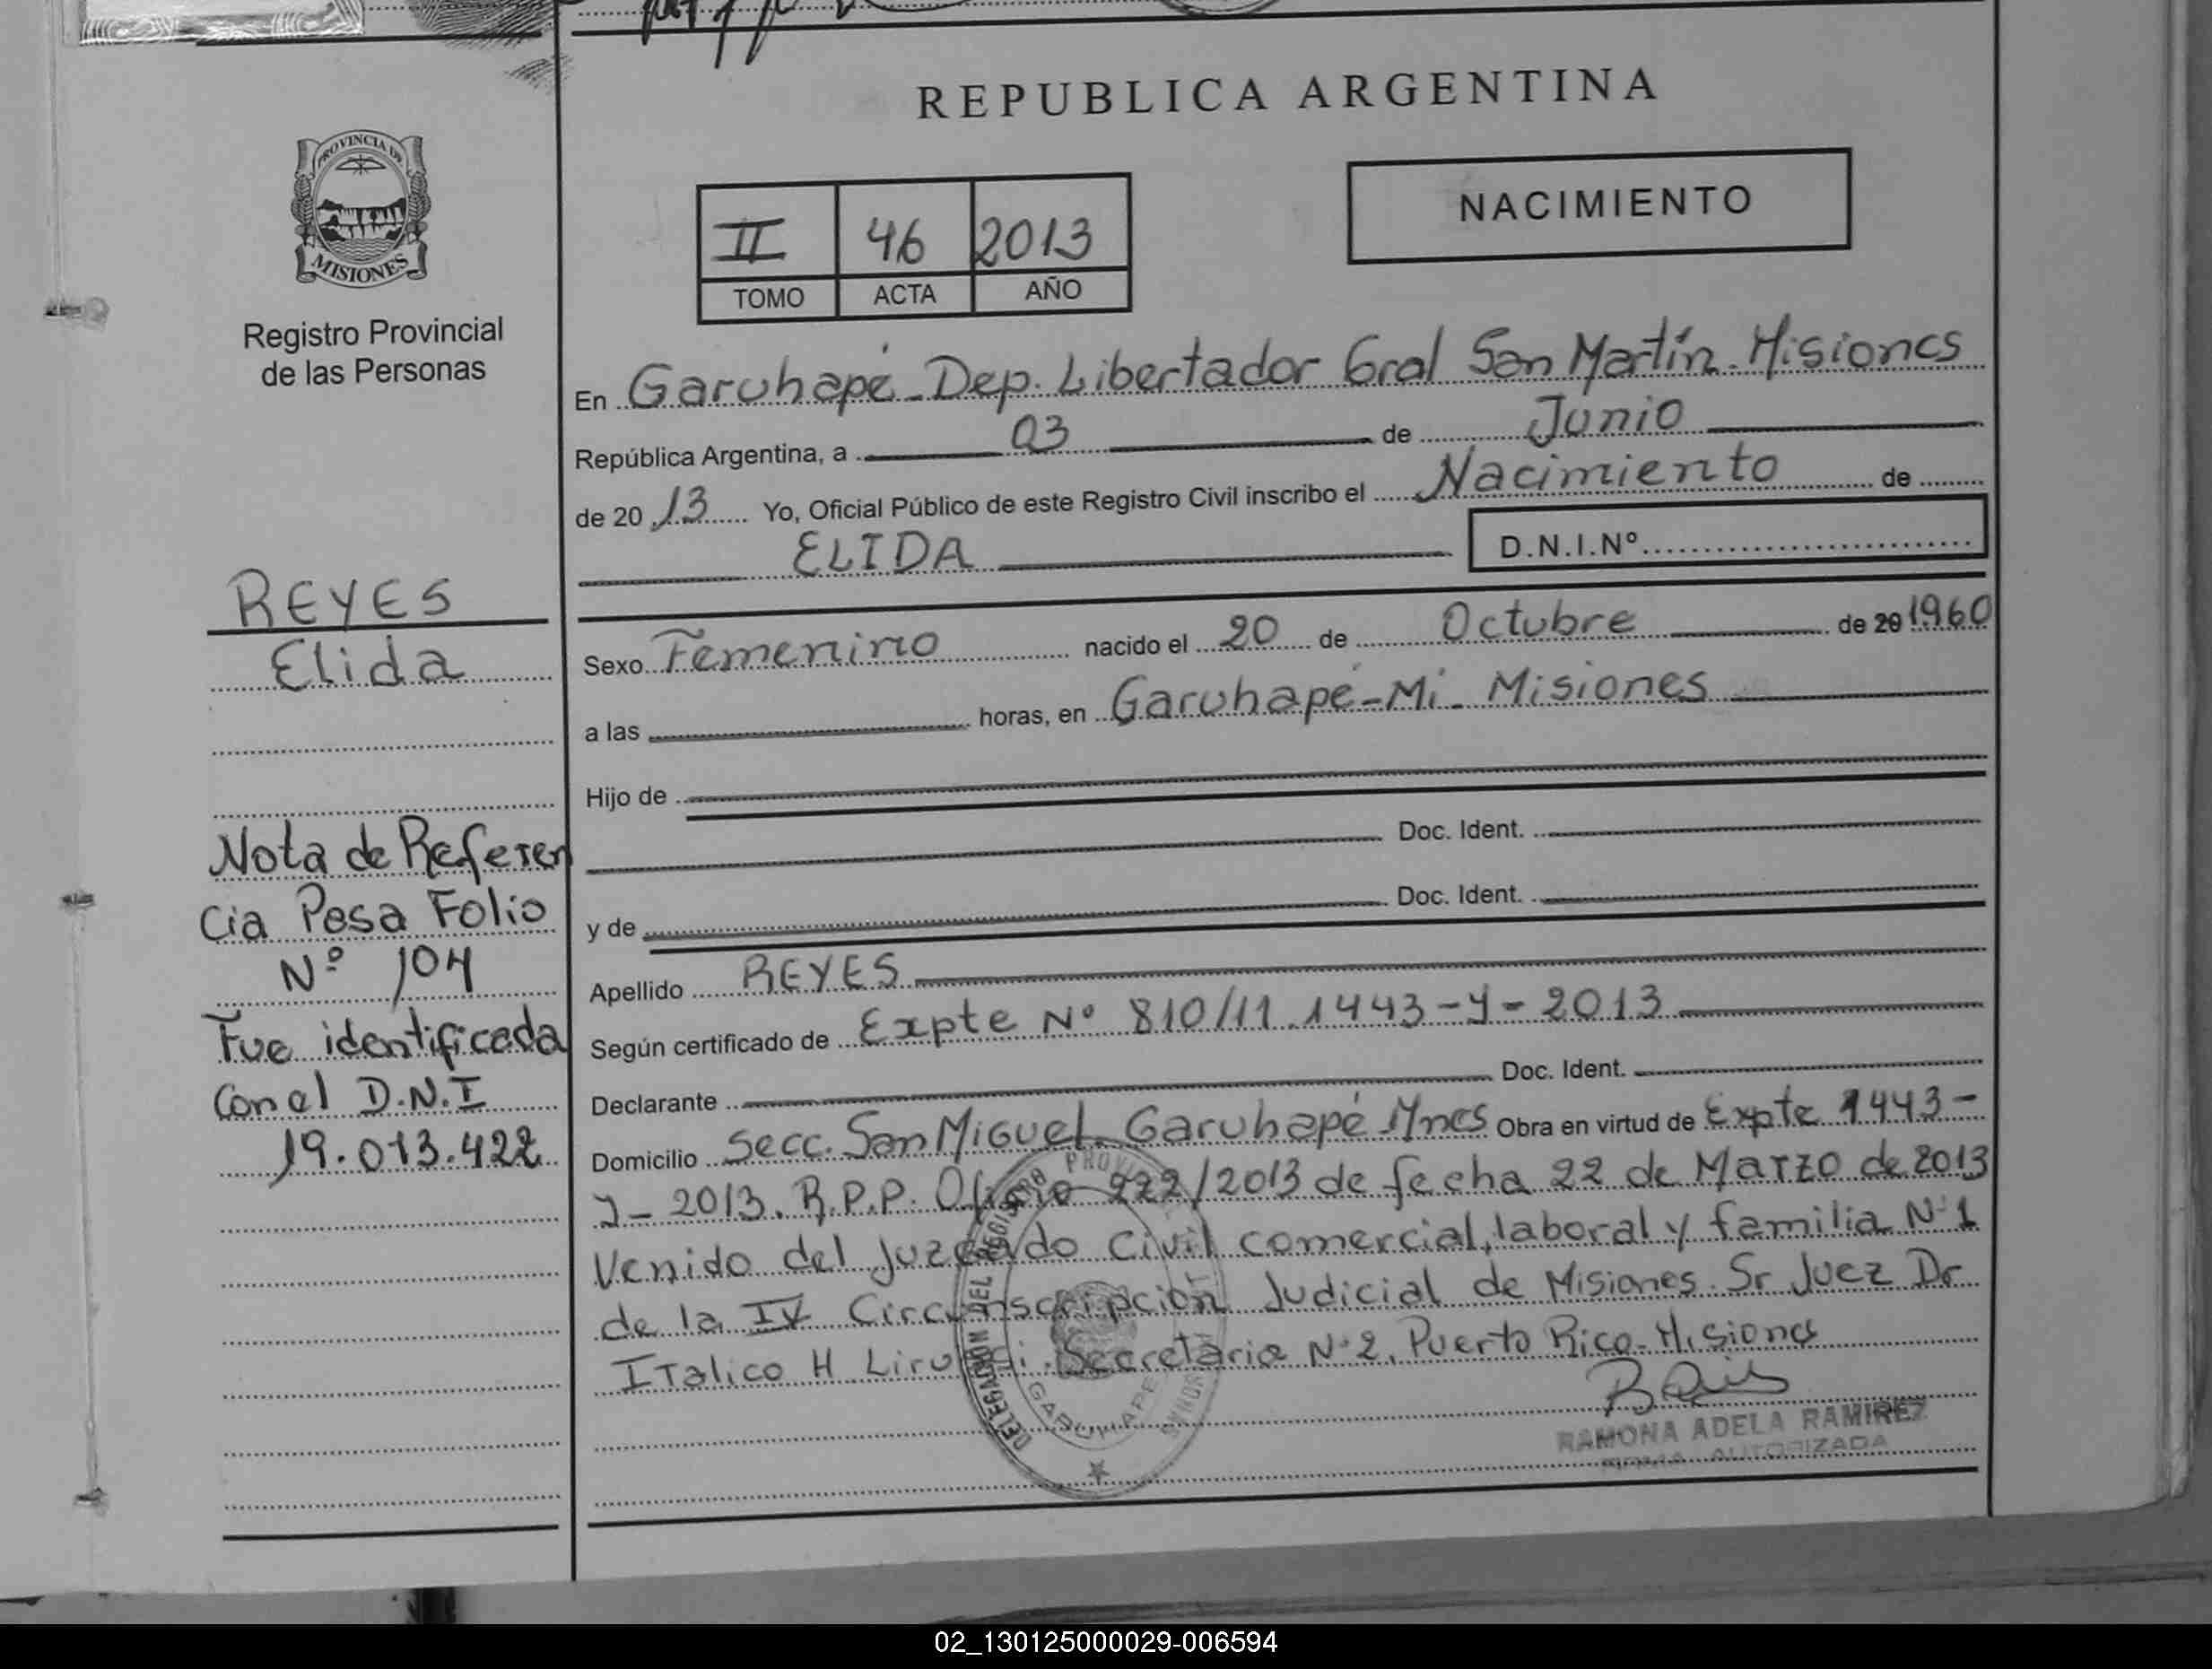 REPUBLICA ARGENTINA
PROVINCIA DE
MISIONES
Registro Provincial
de las Personas
NACIMIENTO
II 46 2013
TOMO ACTA AÑO
En Garuhapé - Dep. Libertador Gral San Martín. Misiones
República Argentina, a 03 de Junio
de 2013 Yo, Oficial Público de este Registro Civil inscribo el Nacimiento de
ELIDA D.N.I.Nº
REYES
Elida
Sexo Femenino nacido el 20 de Octubre de 20 1960
a las horas, en Garuhapé-Mi - Misiones
Hijo de
Doc. Ident.
y de Doc. Ident.
Apellido REYES
Según certificado de Expte Nº 810/11. 1443-Y-2013
Declarante Doc. Ident.
Domicilio Secc. San Miguel. Garuhapé Mnes Obra en virtud de Expte 1443-
Y-2013. R.P.P. Oficio 222/2013 de fecha 22 de Marzo de 2013
Venido del Juzgado Civil comercial, laboral y familia Nº 1
de la IV Circunscripción Judicial de Misiones. Sr Juez Dr
Italico H. Secretaria Nº 2, Puerto Rico - Misiones
Nota de Referen
cia Pasa Folio
Nº 104
Fue identificada
con el D.N.I
19.013.422
DELEGACIÓN DEL REGISTRO
GARUHAPE
RAMONA ADELA RAMIREZ
FIRMA AUTORIZADA
02_130125000029-006594